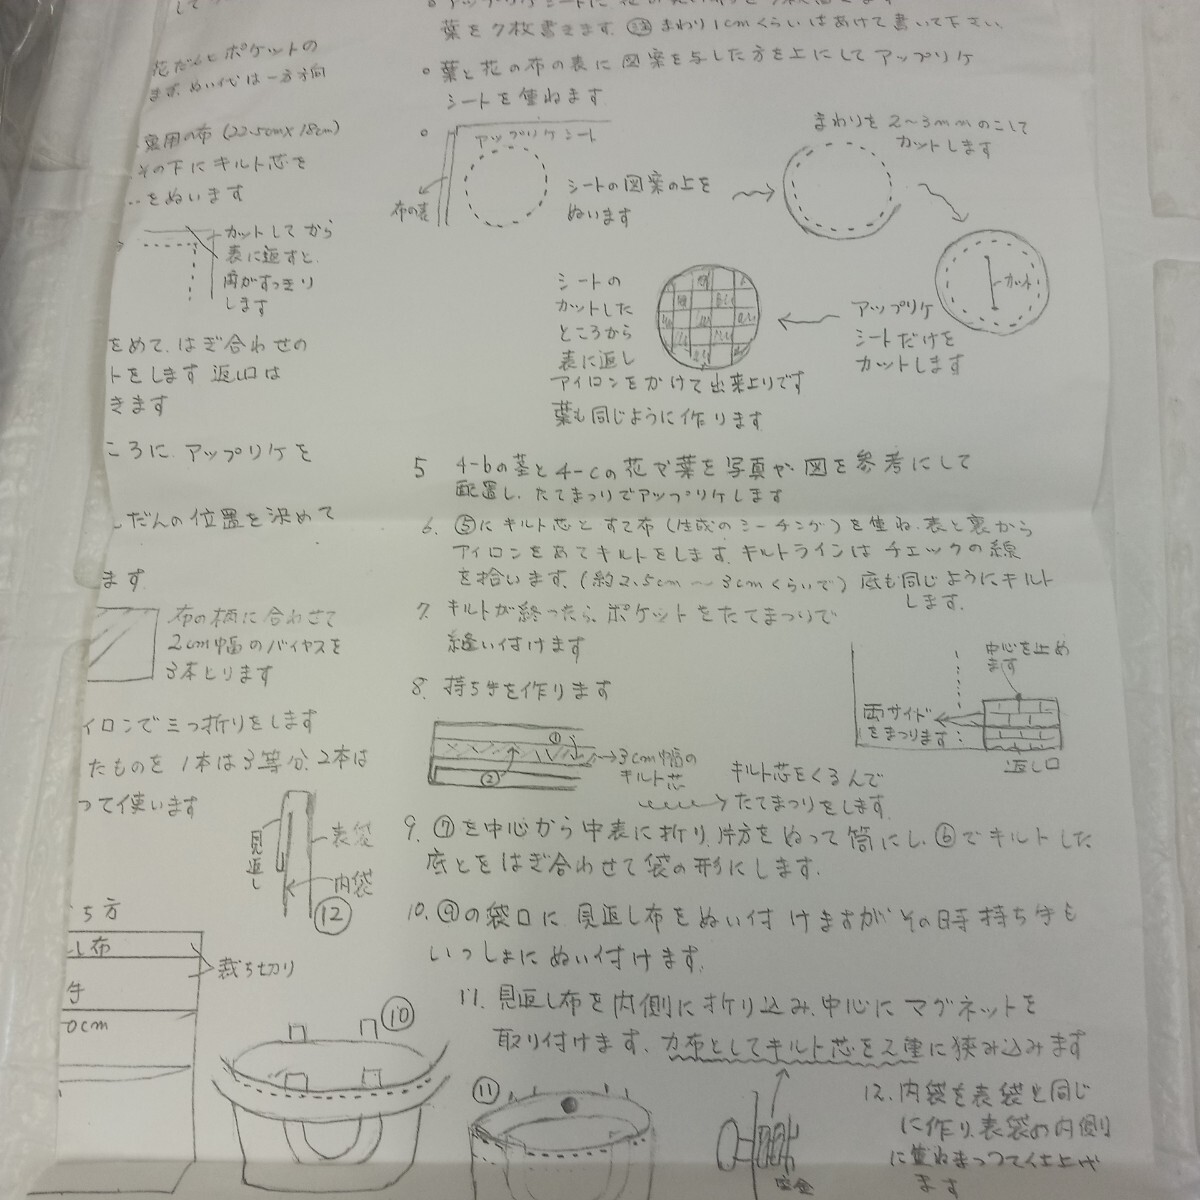 花だんとポケットの
まず、ぬい代は一方方向
裏用の布(22.5cm×18cm)
その下にキルト芯を
をぬいます
カットしてから
表に返すと、
角がすっきり
します
をめて、はぎ合わせの
トをします 返し口は
きます
ころに、アップリケを
しだんの位置を決めて
ます
布の柄に合わせて
2cm幅のバイヤスを
3本とります
イロンで三つ折りをします
たものを 1本は3等分、2本は
って使います
見返し
表袋
内袋
⑫
ち方
し布
裁ち切り
0cm
葉を7枚書きます。㊟まわり1cmくらいはあけて書いて下さい。
○葉と花の布の表に図案を写した方を上にしてアップリケ
シートを重ねます
アップリケシート
布の表
シートの図案の上を
ぬいます
まわりを2〜3mmのこして
カットします
カット
アップリケ
シートだけを
カットします
シートの
カットした
ところから
表に返し
アイロンをかけて出来上りです
葉も同じように作ります
5 4-bの茎と4-cの花や葉を写真や図を参考にして
配置し、たてまつりでアップリケします
6. ⑤にキルト芯とすて布(生成のシーチング)を重ね、表と裏から
アイロンをあてキルトをします。キルトラインはチェックの線
を拾います。(約2.5cm〜3cmくらいで)底も同じようにキルト
します。
7. キルトが終ったら、ポケットをたてまつりで
縫い付けます
中心を止め
ます
両サイド
をまつります
返し口
8. 持ち手を作ります
①
②
3cm幅の
キルト芯
キルト芯をくるんで
たてまつりをします
9. ⑦を中心から中表に折り、片方をぬって筒にし、⑥でキルトした
底とをはぎ合わせて袋の形にします。
10. ⑨の袋口に、見返し布をぬい付けますがその時持ち手も
いっしょにぬい付けます。
11. 見返し布を内側に折り込み、中心にマグネットを
取り付けます。力布としてキルト芯を2重に狭み込みます
⑩
⑪
座金
12. 内袋を表袋と同じ
に作り、表袋の内側
に重ねまつって仕上げ
ます